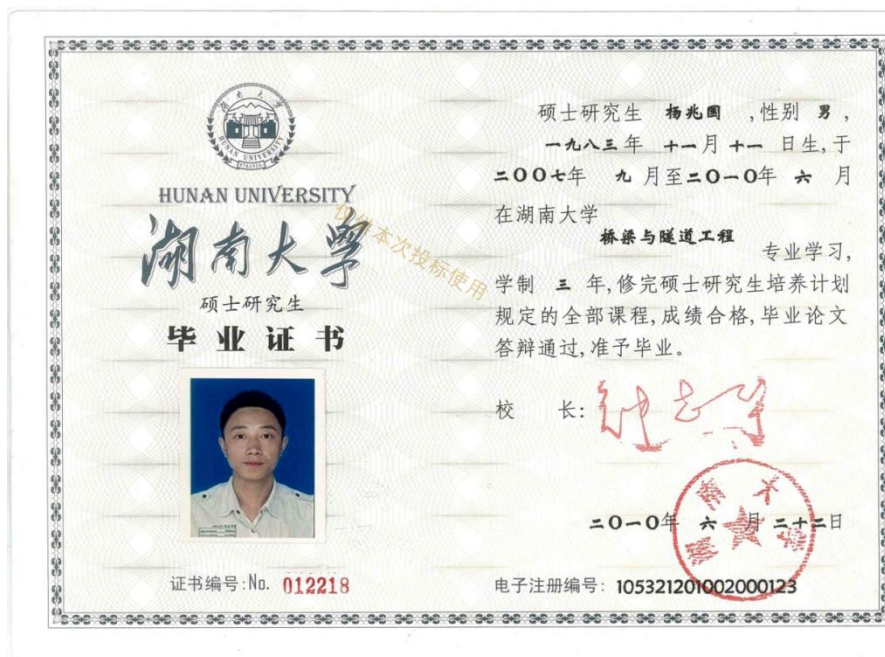 湖南大学
HUNAN UNIVERSITY
HUNAN UNIVERSITY
湖南大學
硕士研究生
毕业证书
仅供本次投标使用
证书编号:No. 012218
硕士研究生 杨兆国 ,性别 男,
一九八三年 十一月十一 日生,于
二〇〇七年 九 月至二〇一〇年 六 月
在湖南大学
桥梁与隧道工程
专业学习,
学制 三 年,修完硕士研究生培养计划
规定的全部课程,成绩合格,毕业论文
答辩通过,准予毕业。
校 长:
二〇一〇年 六 月二十二日
湖南大学
电子注册编号: 105321201002000123